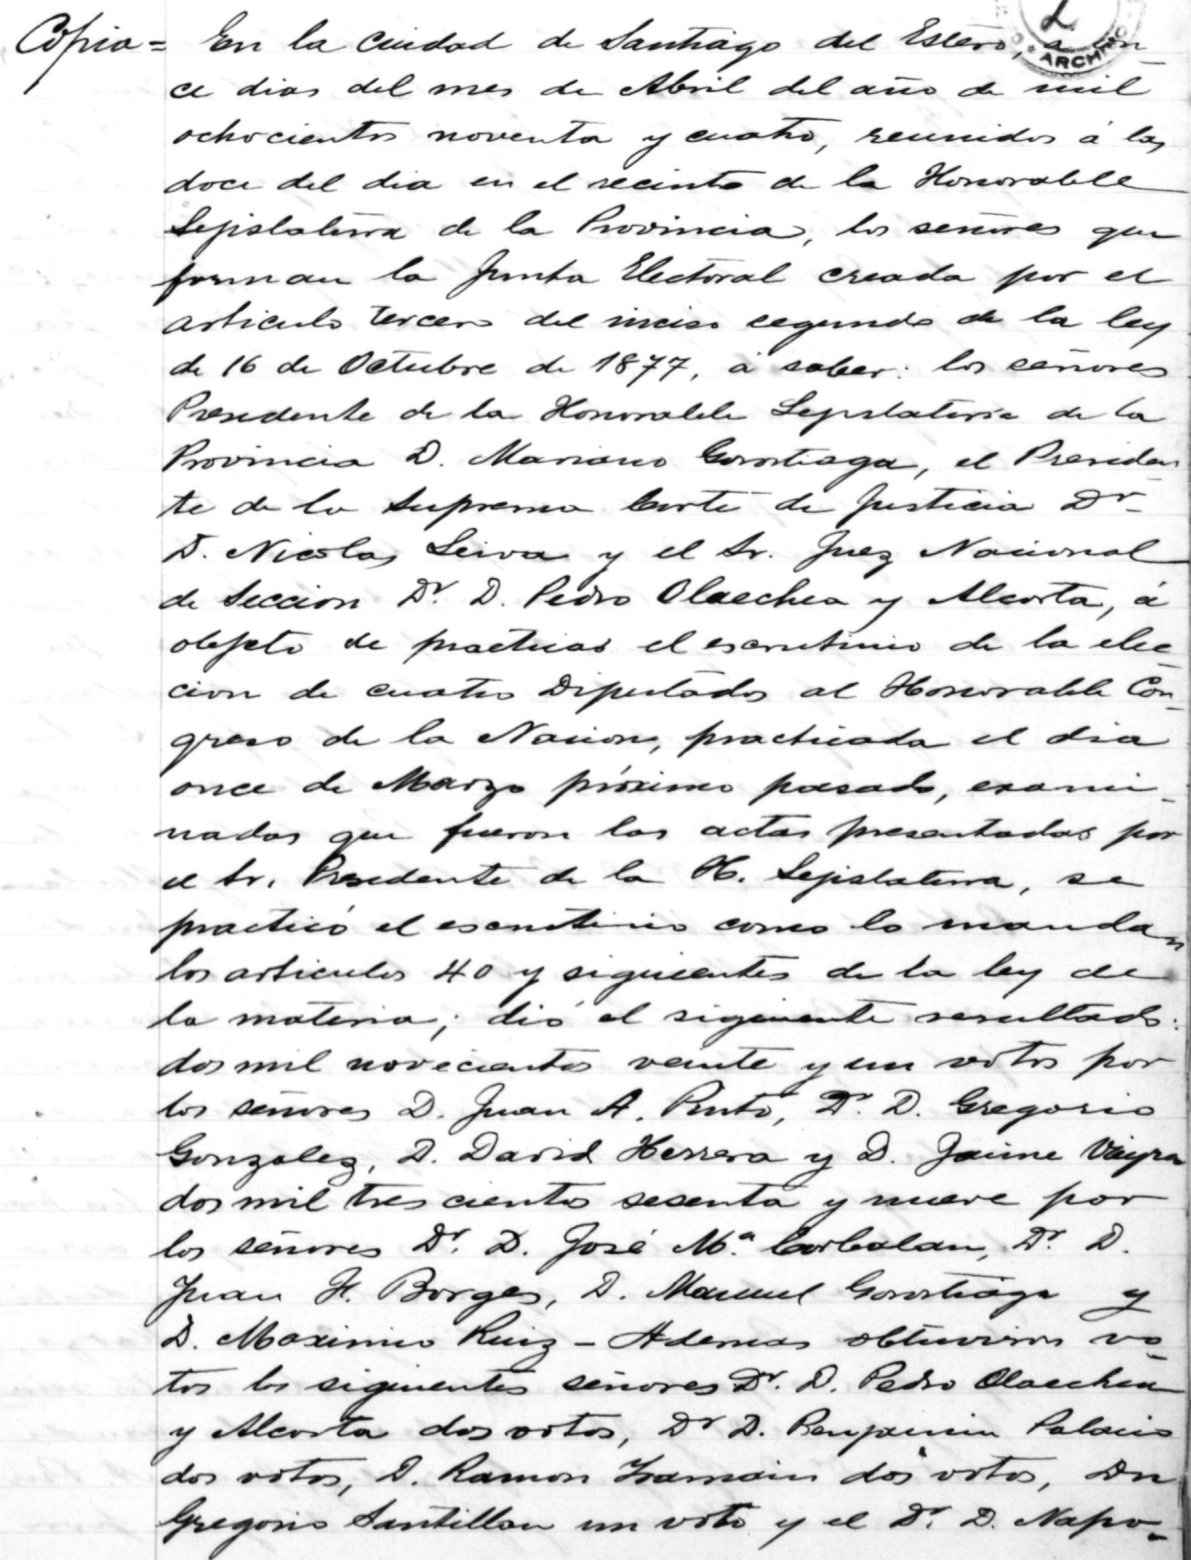 2
ARCHIVO
Copia = En la ciudad de Santiago del Estero, a on-
ce dias del mes de Abril del año de mil
ochocientos noventa y cuatro, reunidos á las
doce del dia en el recinto de la Honorable
Lejislatura de la Provincia, los señores que
forman la Junta Electoral creada por el
articulo tercero del inciso segundo de la ley
de 16 de Octubre de 1877, á saber: los señores
Presidente de la Honorable Lejislatura de la
Provincia D. Mariano Gorostiaga, el Presiden-
te de la Suprema Corte de Justicia Dr
D. Nicolas Leiva y el Sr. Juez Nacional
de Seccion Dr. D. Pedro Olaechea y Alcorta, á
objeto de practicar el escrutinio de la elec-
cion de cuatro Diputados al Honorable Con-
greso de la Nacion, practicada el dia
once de Marzo próximo pasado, exami-
nadas que fueron las actas presentadas por
el Sr. Presidente de la H. Lejislatura, se
practicó el escrutinio como lo mandan
los articulos 40 y siguientes de la ley de
la materia; dió el siguiente resultado:
dos mil novecientos veinte y un votos por
los señores D. Juan A. Pinto, Dr. D. Gregorio
Gonzalez, D. David Herrera y D. Jaime Vieyra
dos mil trescientos sesenta y nueve por
los señores Dr. D. José Mª Corbalan, Dr. D.
Juan F. Borges, D. Manuel Gorostiaga y
D. Maximio Ruiz - Ademas obtuvieron vo-
tos los siguientes señores Dr. D. Pedro Olaechea
y Alcorta dos votos, Dr D. Benjamin Palacio
dos votos, D. Ramon dos votos, Dn
Gregorio Santillan un voto y el Dr. D. Napo-